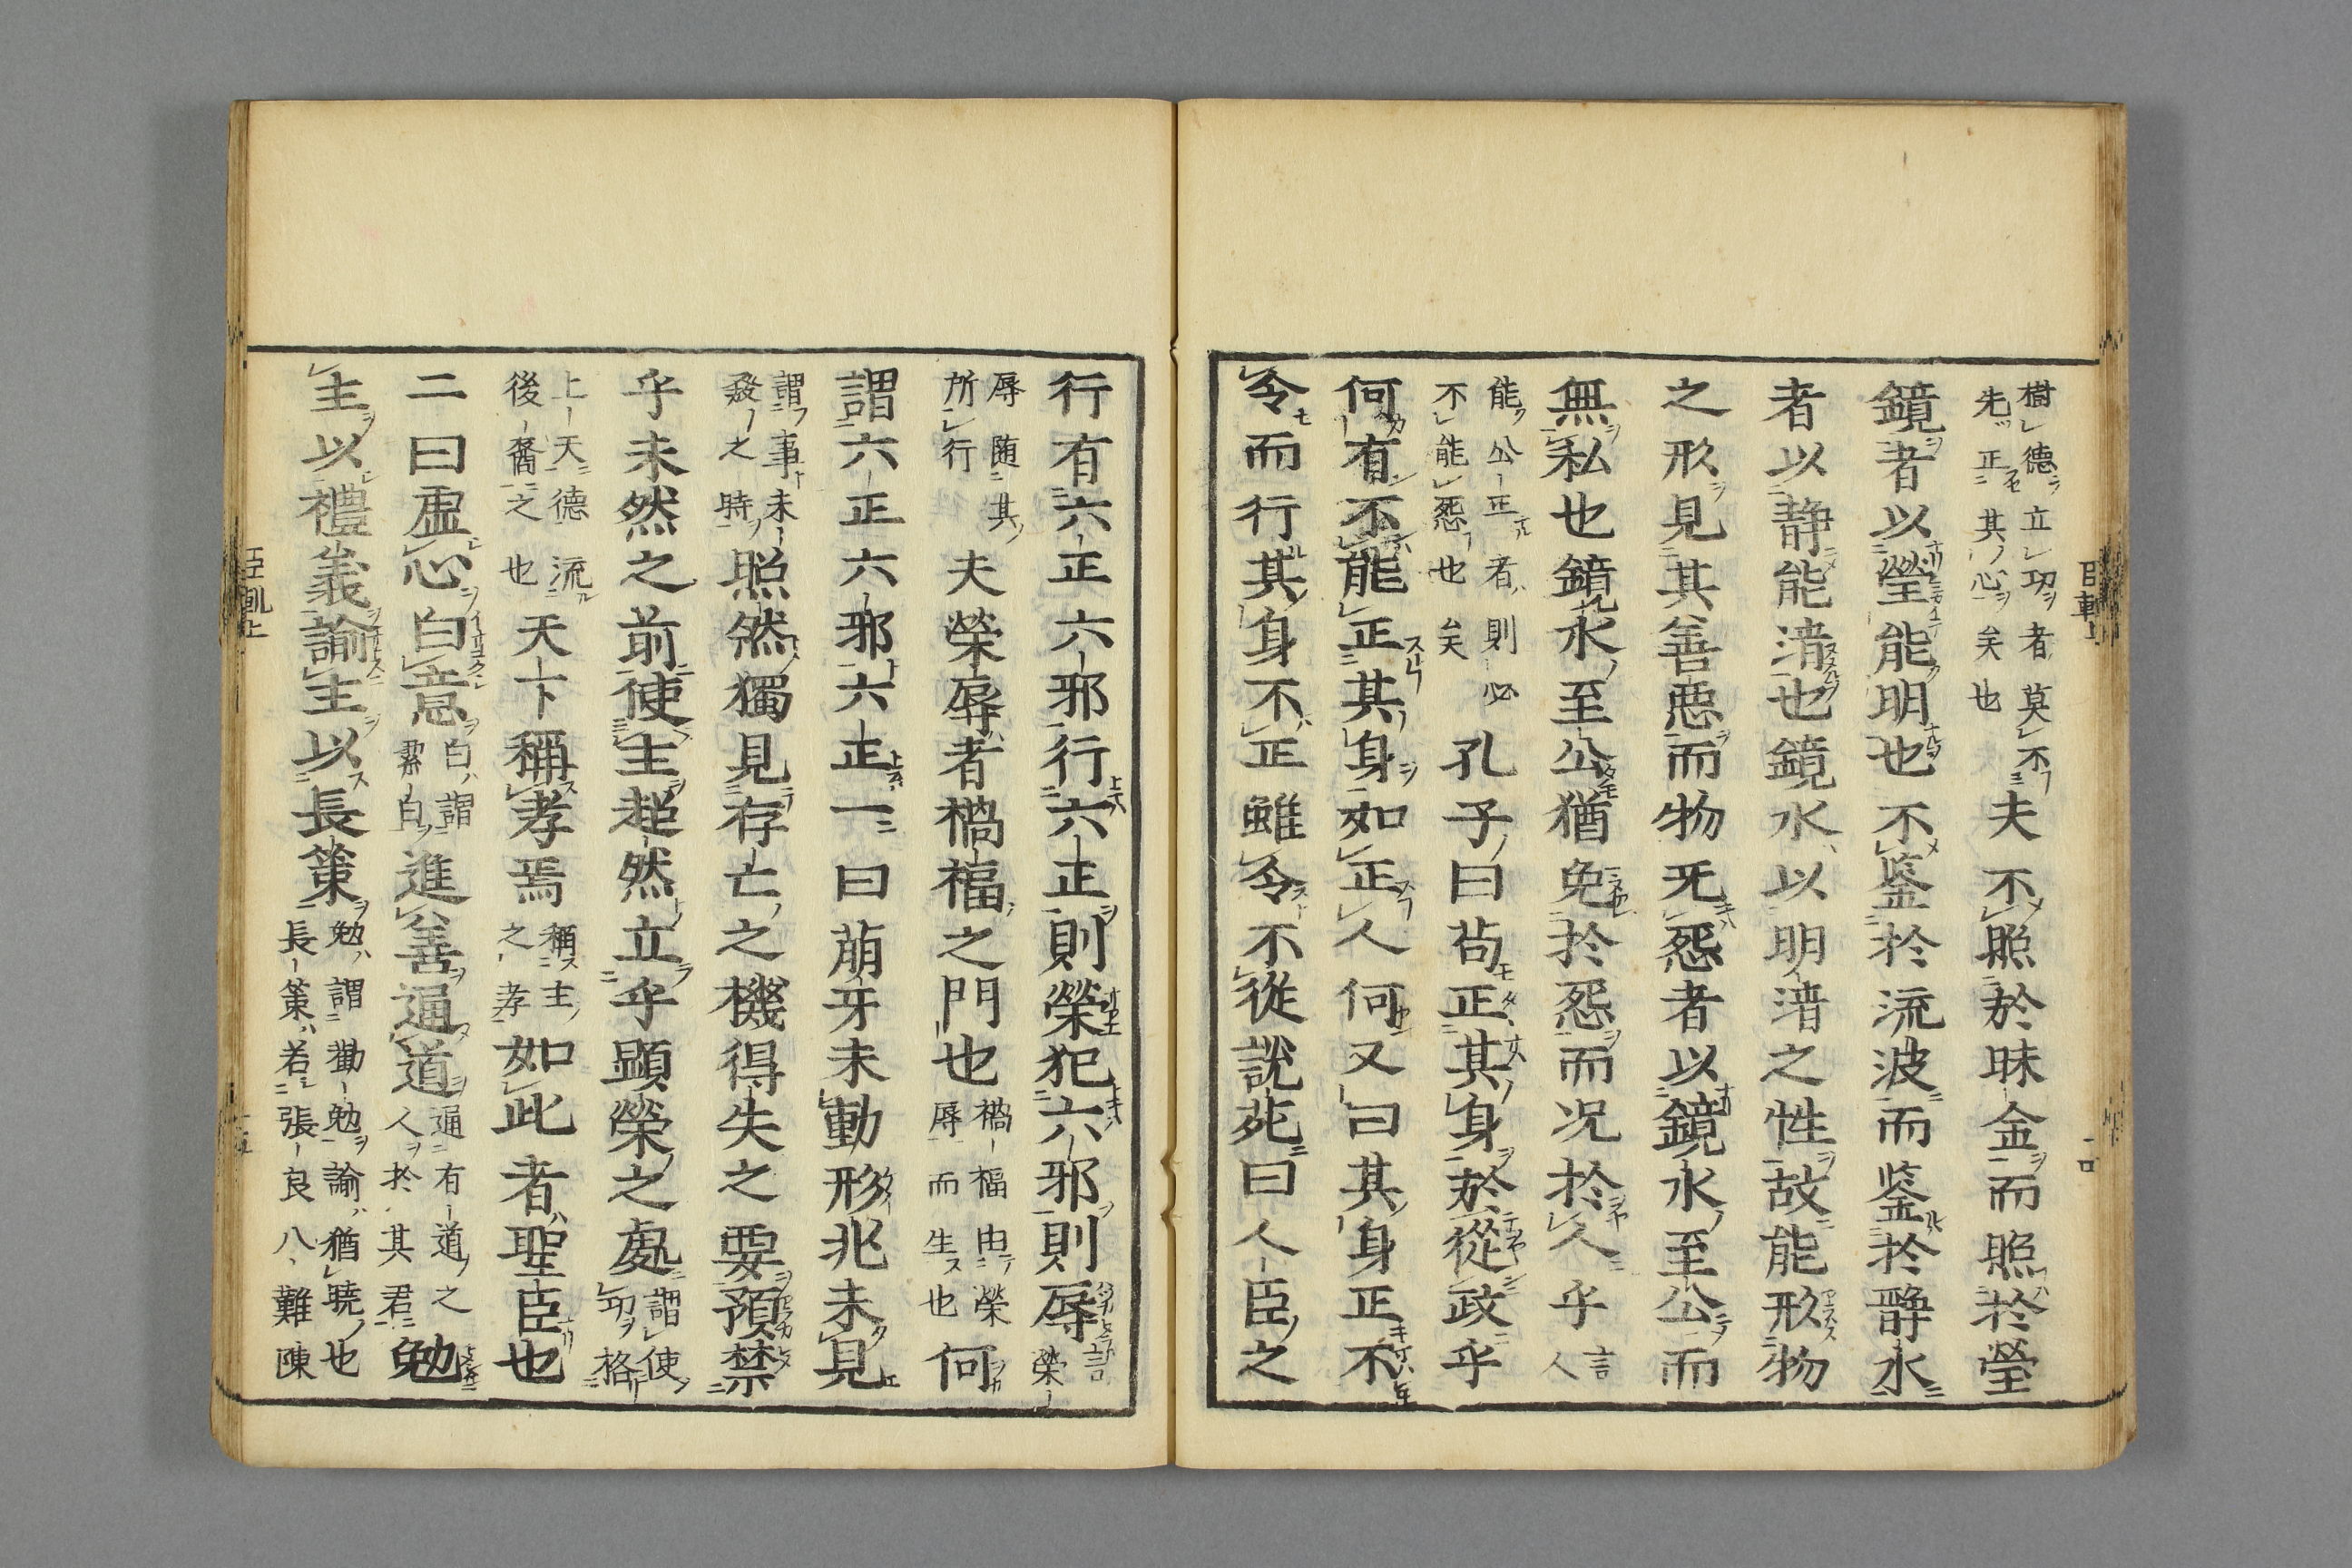 樹德立功者莫不
先正其心矣也
夫不照於昧金而照於瑩
鏡者以瑩能明也不鍳於流波而鍳於靜水
者以静能清也鏡水以明清之性故能形物
之形見其善惡而物无怨者以鏡水至公而
無私也鏡水至公猶免於怨而况於人乎
言
人
能公正者則必
不能怨也矣
孔子曰苟正其身於從政乎
何有不能正其身如正人何又曰其身正不
令而行其身不正雖令不從說苑曰人臣之
行有六正六邪行六正則榮犯六邪則辱
言
榮
辱随其
所行
夫榮辱者禍福之門也
禍福由榮
辱而生也
何
謂六正六邪六正一曰萠牙未動形兆未見
謂事未
發之時
照然獨見存亡之機得失之要預禁
乎未然之前使主超然立乎顯榮之處
謂使
功格
上天德流
後裔之也
天下稱孝焉
稱主
之孝
如此者聖臣也
二曰虛心白意
白謂
潔白
進善通道
通有道之
人於其君
勉
主以禮義諭主以長策
勉謂勸勉諭猶曉也
長策若張良八難陳